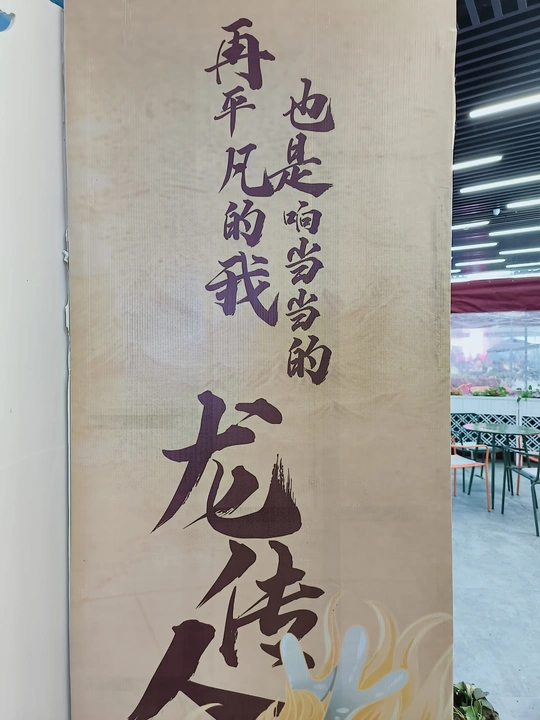 再平凡的我
也是响当当的
龙传人